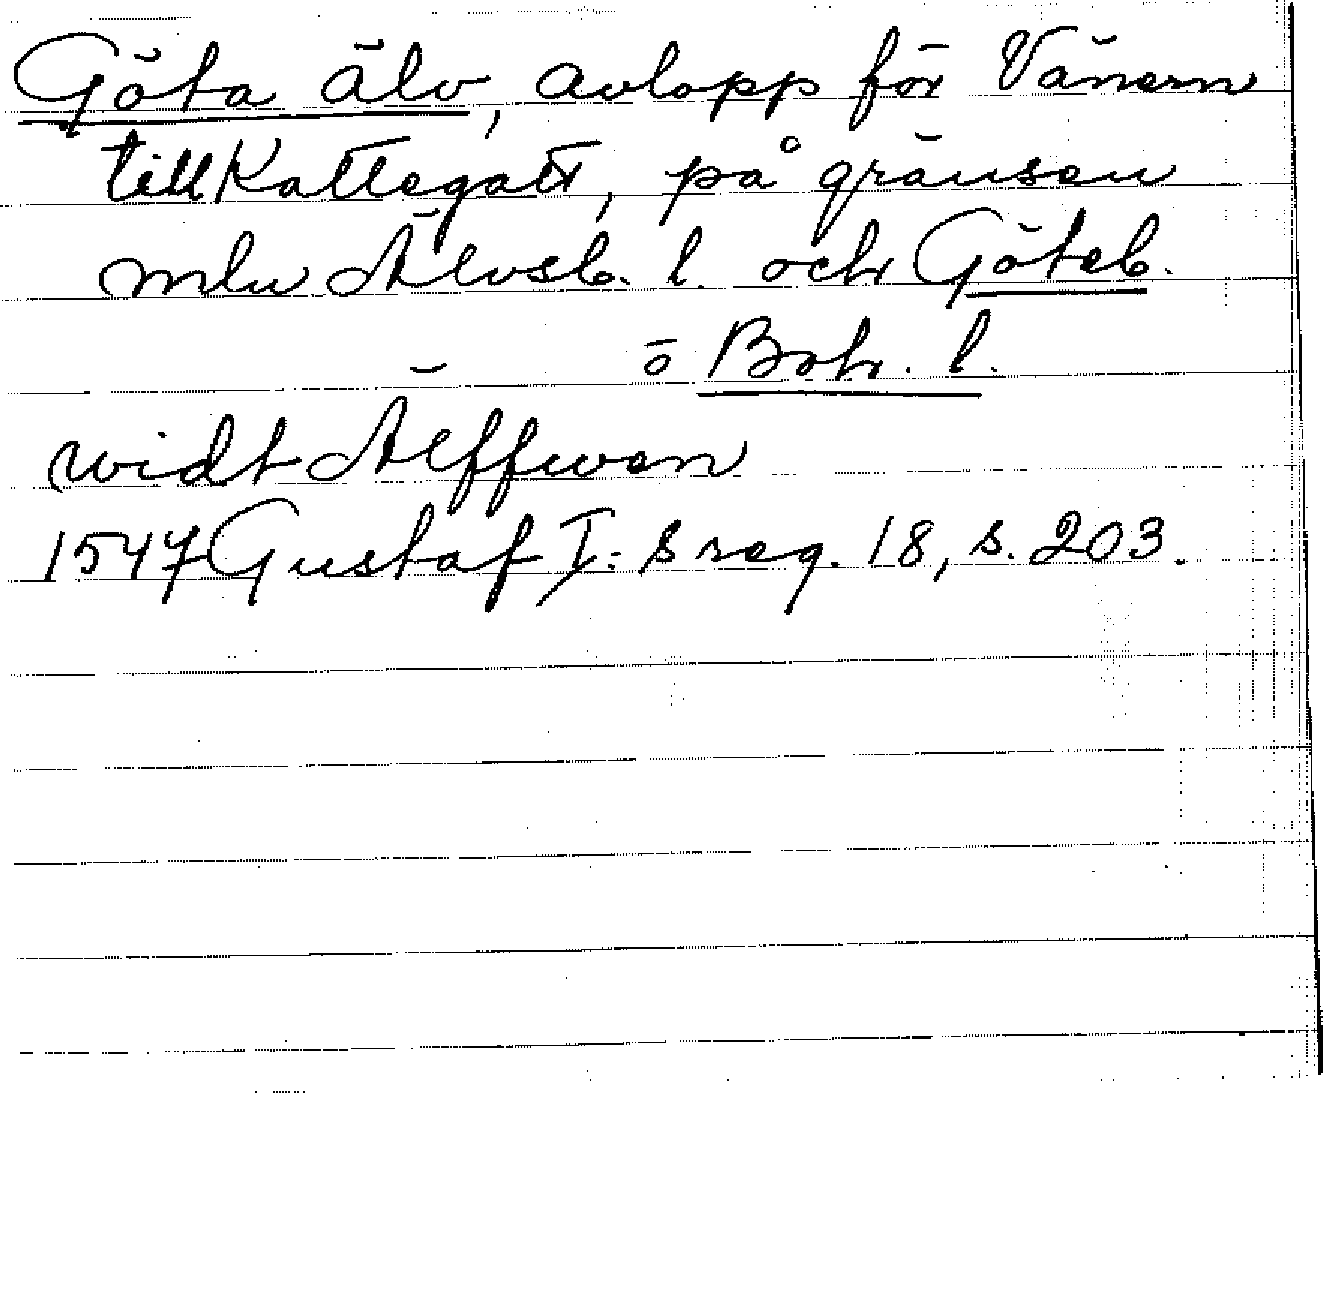 Göta älv, avlopp för Vänern
till Kattegatt, på gränsen
mln Älvsb. l. och Göteb.
o Boh. l.
widt Älffwen
1547 Gustaf I:s reg. 18, s. 203.